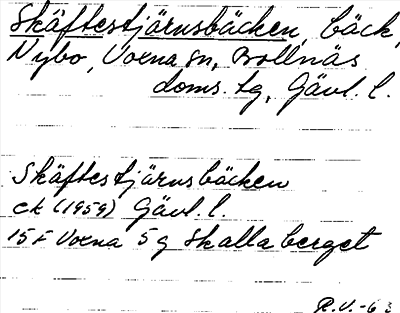 Skäftestjärnsbäcken, bäck,
Nybo, Voxna sn, Bollnäs
doms. tg, Gävl. l.
Skäftestjärnsbäcken
ek (1959) Gävl. l.
15F Voxna 5g Skallaberget
R.V. -63